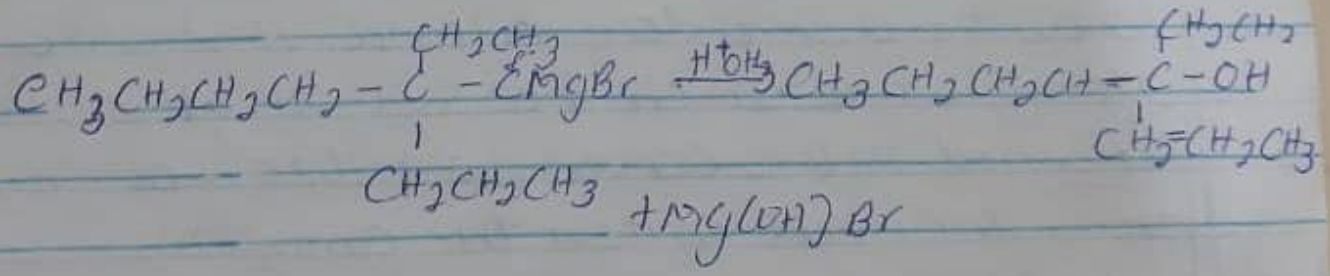 CH2CH3 CH2CH2
CH3CH2CH2CH2 - C - EMgBr H+OH3 CH3CH2CH2CH - C - OH
CH2CH2CH3 CH2=CH2CH3
+Mg(OH)Br